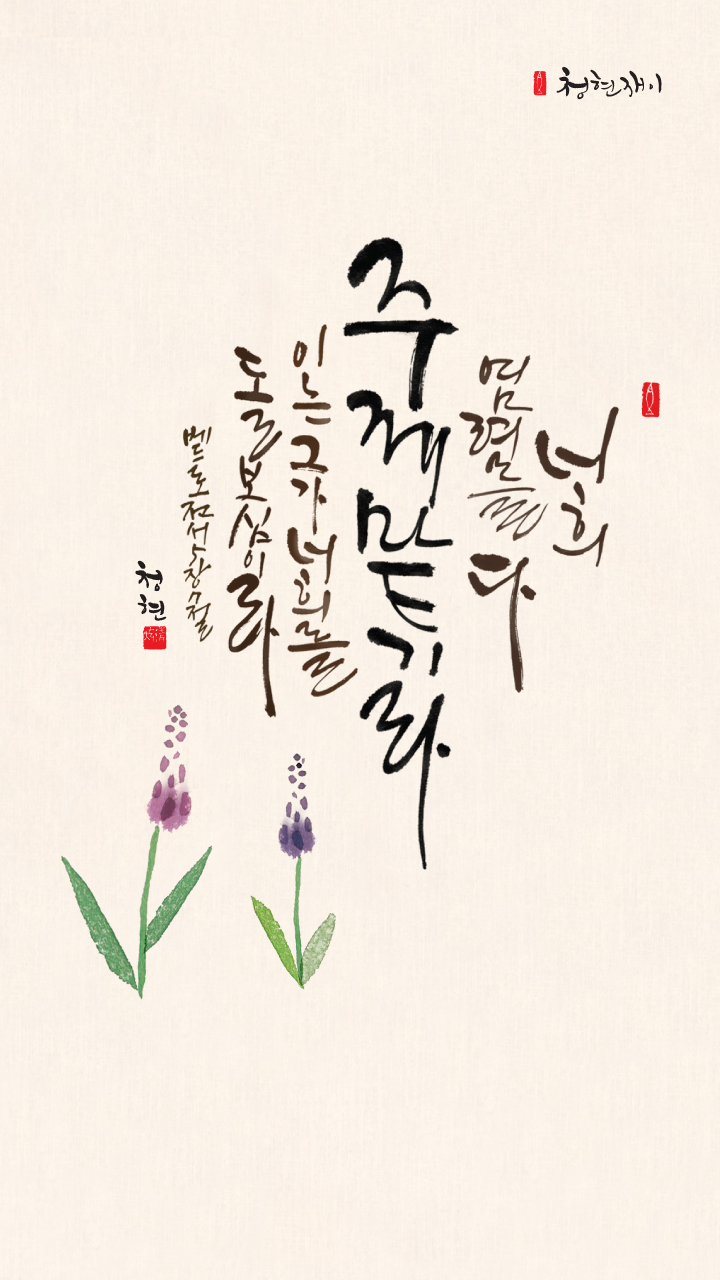 청현재이
너희
염려를 다
주께 맡기라
이는 그가 너희를
돌보심이라
베드로전서 5장 7절
청현